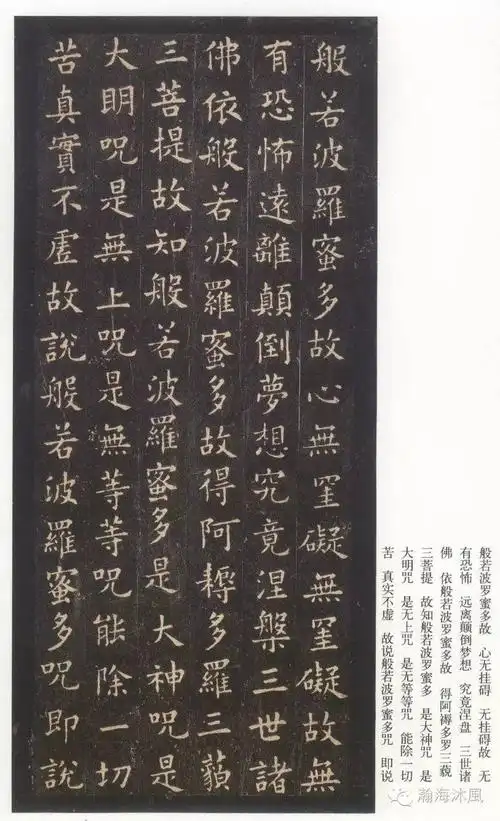 般若波羅蜜多故心無罣礙無罣礙故無
有恐怖遠離顛倒夢想究竟涅槃三世諸
佛依般若波羅蜜多故得阿耨多羅三藐
三菩提故知般若波羅蜜多是大神咒是
大明咒是無上咒是無等等咒能除一切
苦真實不虛故說般若波羅蜜多咒即說
般若波罗蜜多故 心无挂碍 无挂碍故 无
有恐怖 远离颠倒梦想 究竟涅盘 三世诸
佛 依般若波罗蜜多故 得阿褥多罗三藐
三菩提 故知般若波罗蜜多 是大神咒 是
大明咒 是无上咒 是无等等咒 能除一切
苦 真实不虚 故说般若波罗蜜多咒 即说
瀚海沐風